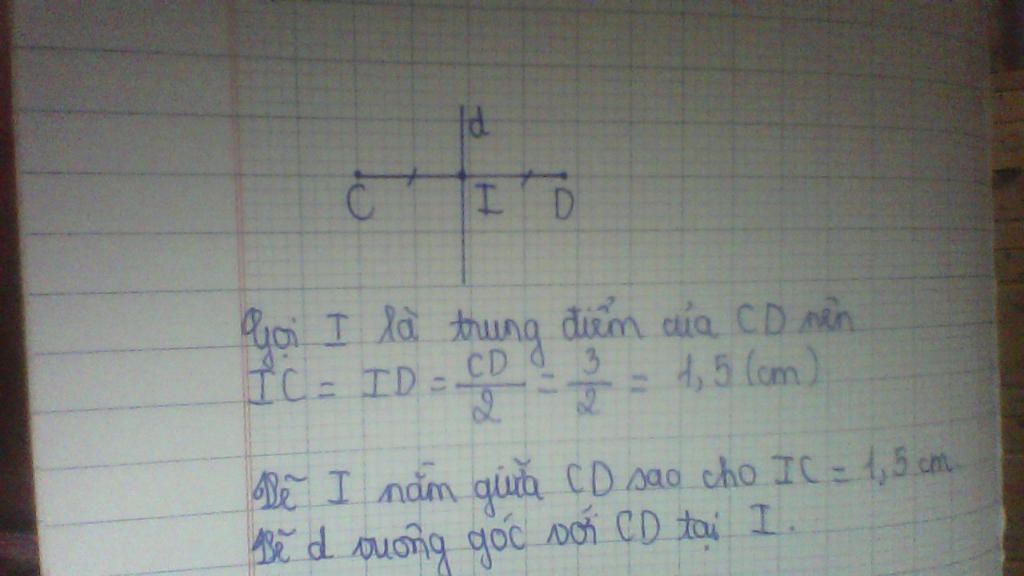 d
C I D
Gọi I là trung điểm của CD nên
IC = ID = CD/2 = 3/2 = 1,5 (cm)
Vẽ I nằm giữa CD sao cho IC = 1,5 cm
Vẽ d vuông góc với CD tại I.